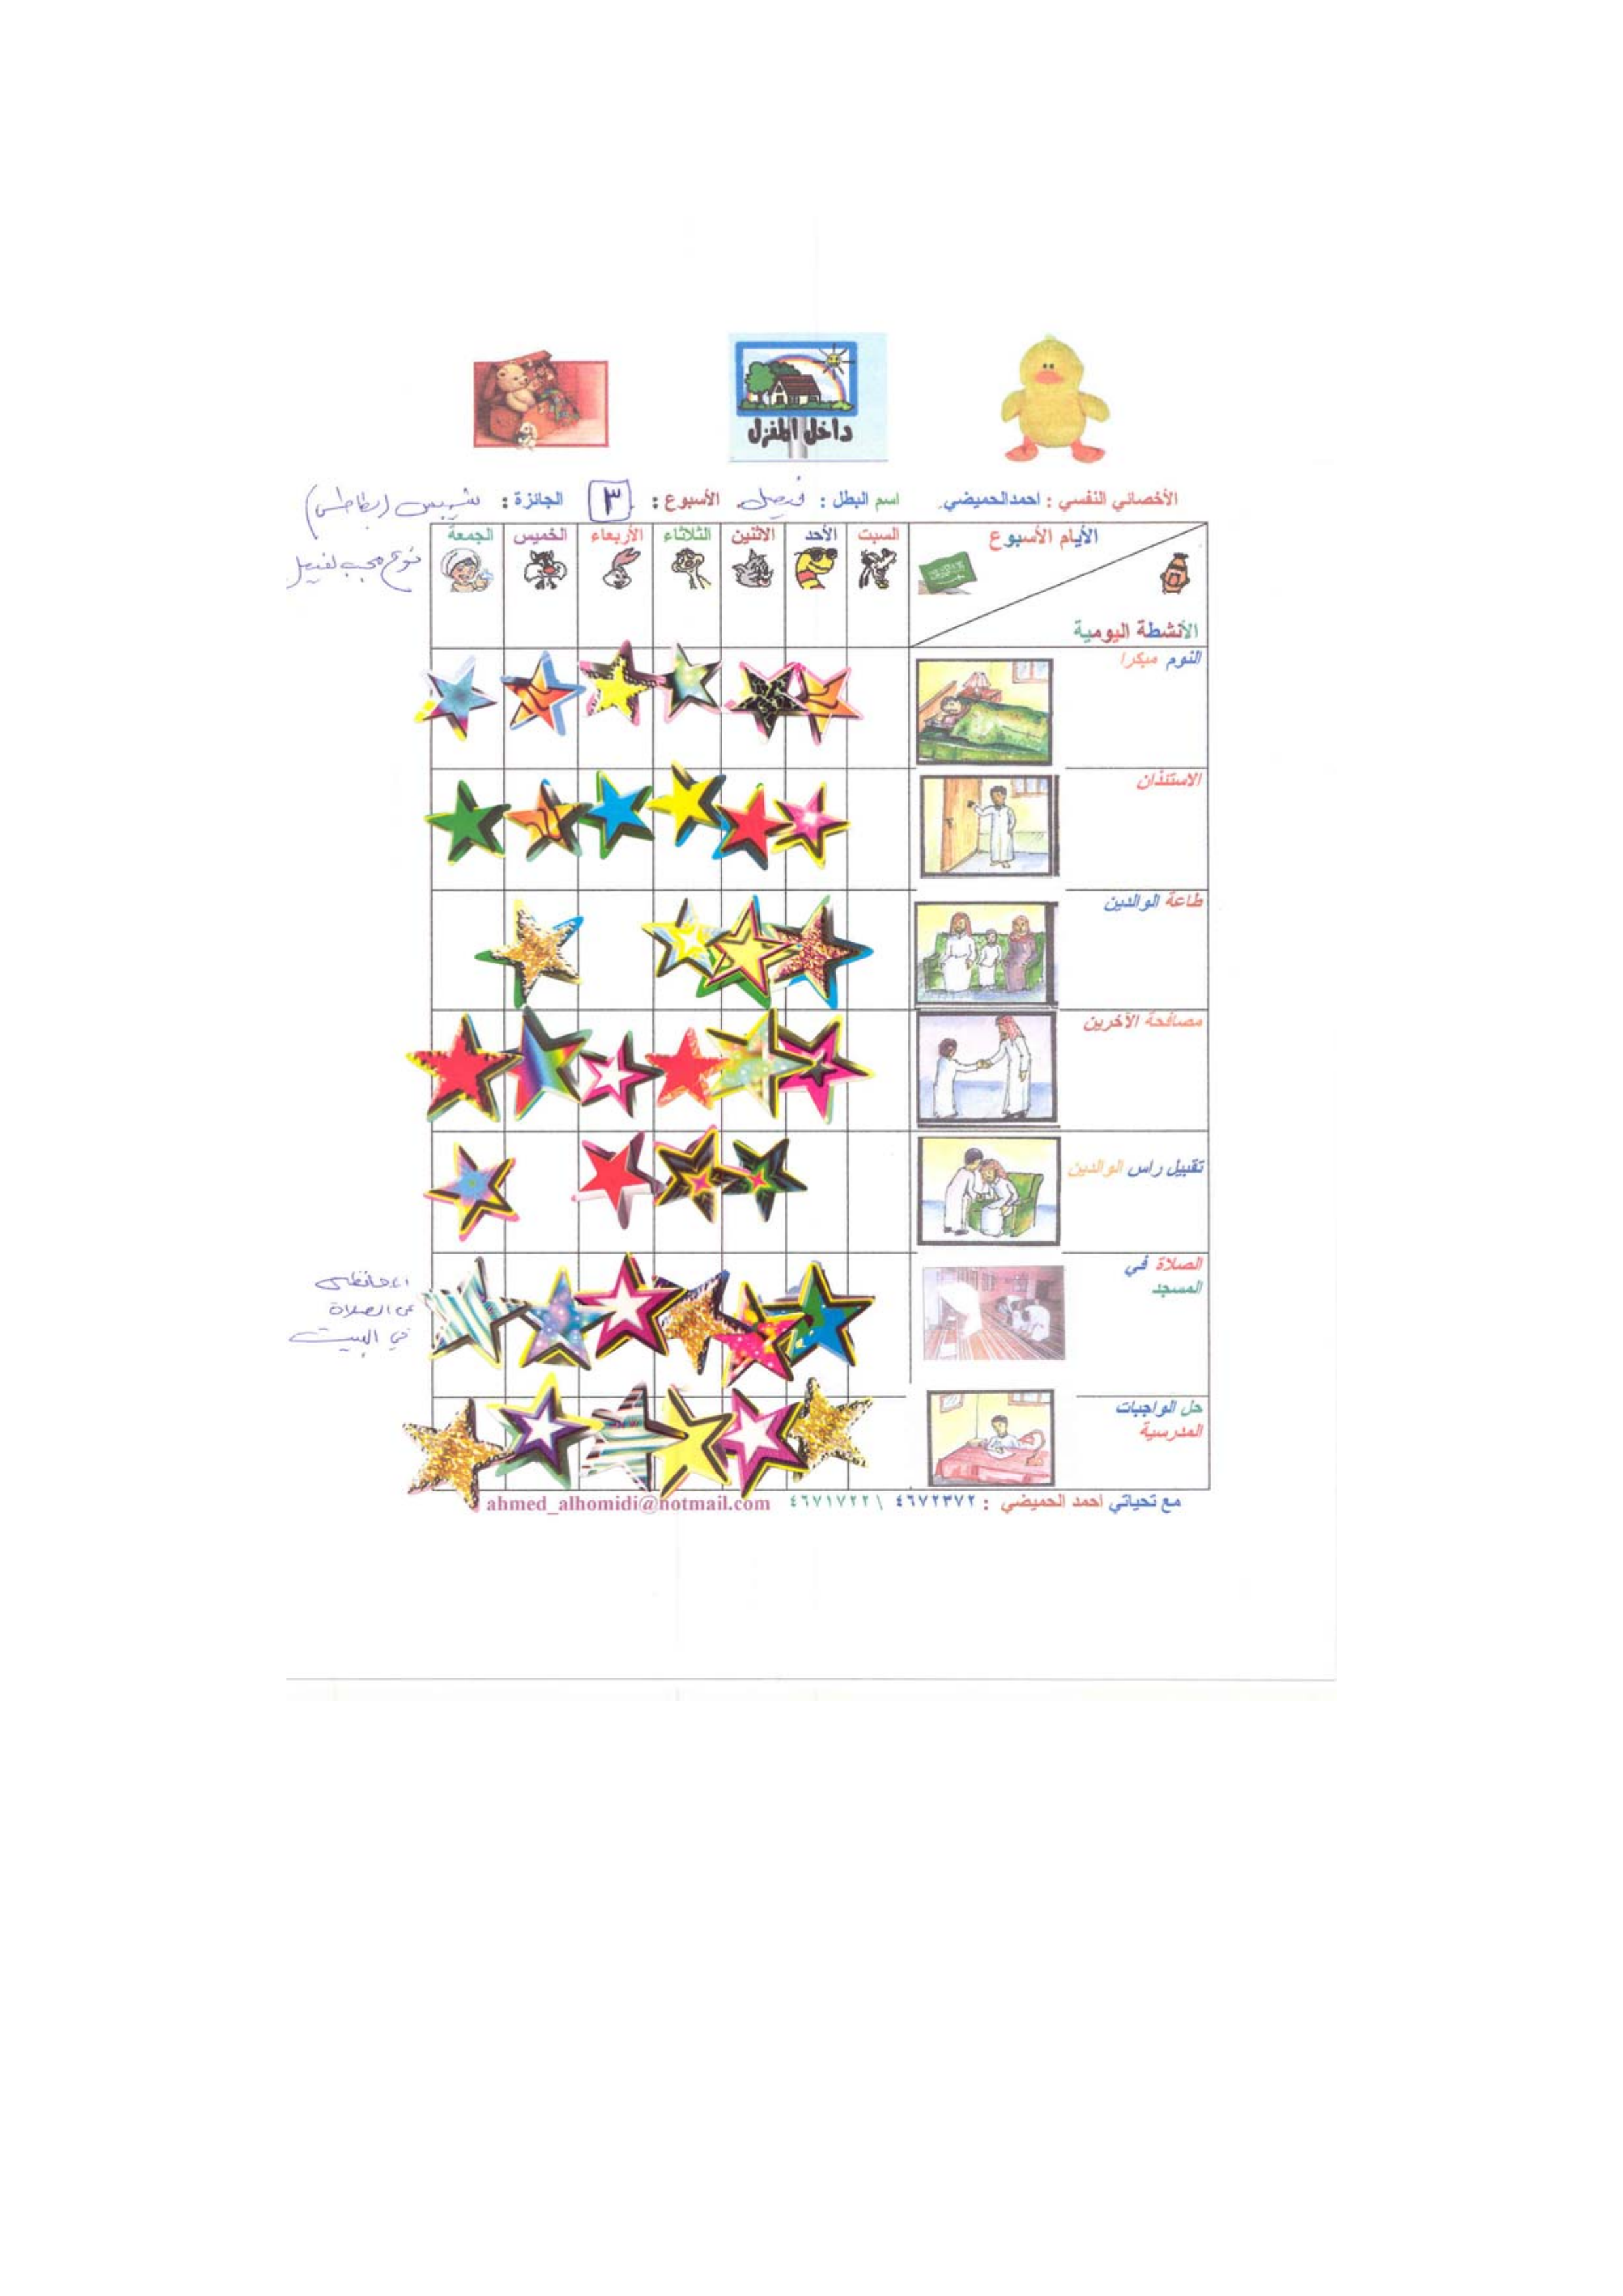 داخل المنزل
الأخصائي النفسي : احمدالحميضي اسم البطل : فيصل الأسبوع : ٣ الجائزة : شيبس (بطاطس)
نوع محبب لفيصل
الأيام الأسبوع السبت الأحد الاثنين الثلاثاء الأربعاء الخميس الجمعة
الأنشطة اليومية
النوم مبكرا
الاستئذان
طاعة الوالدين
مصافحة الآخرين
تقبيل راس الوالدين
الصلاة في
المسجد
على الصلاة
في البيت
حل الواجبات
المدرسية
مع تحياتي احمد الحميضي : ٤٦٧٢٣٧٢ \ ٤٦٧١٧٢٢ ahmed_alhomidi@hotmail.com